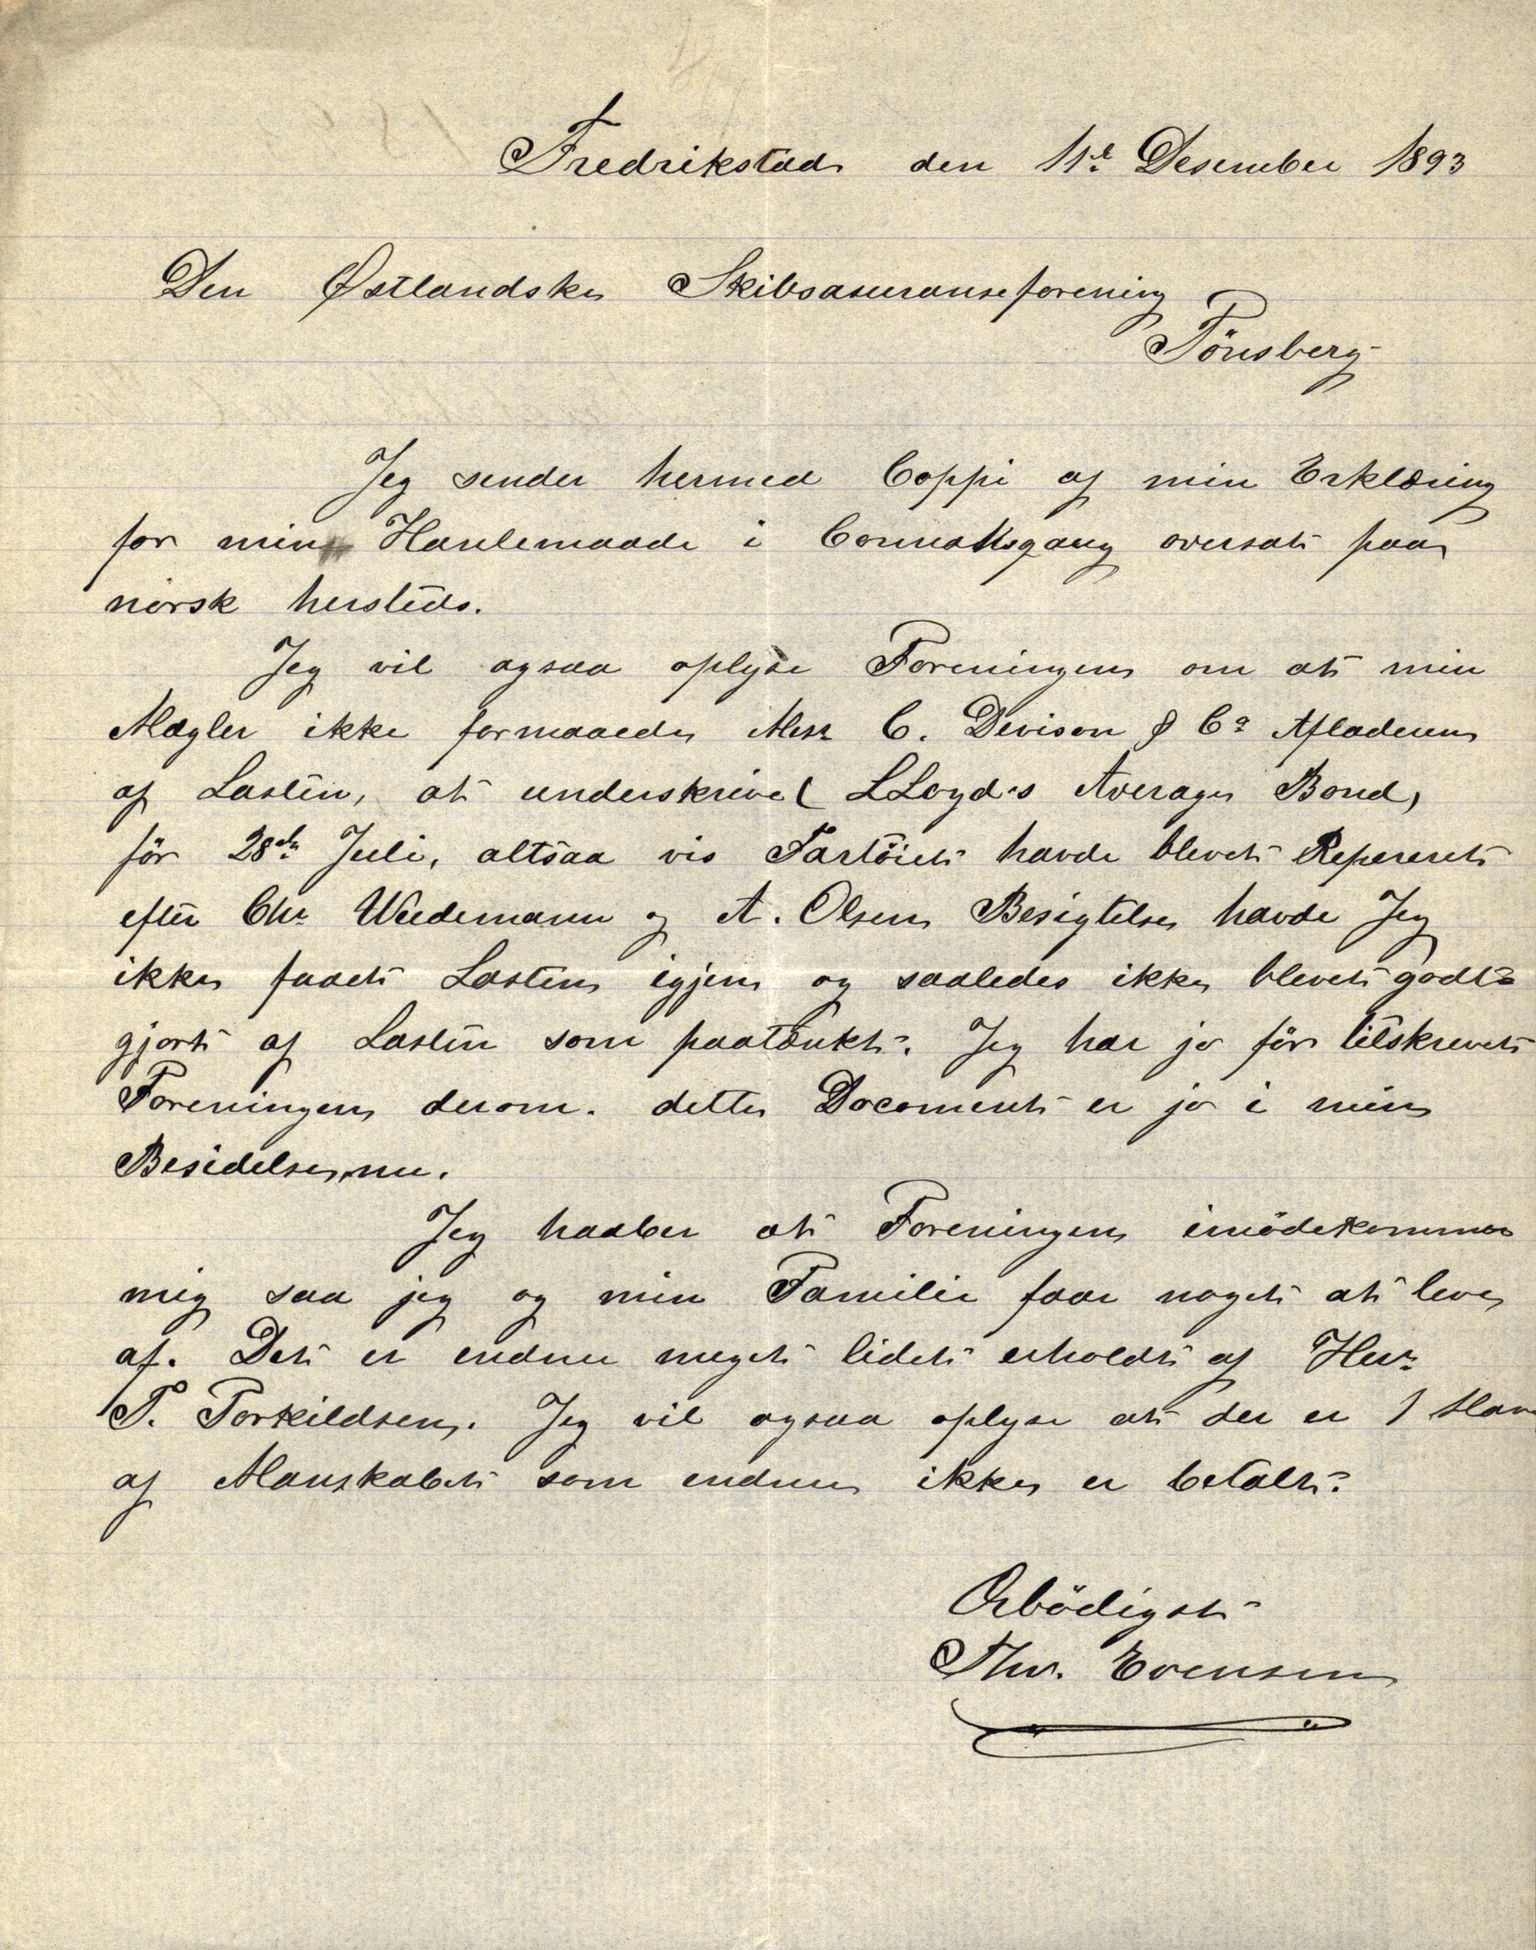 Fredrikstad den 11te Desember 1893
Den Østlandske Skibsasuranseforening
Tönsberg
Jeg sender hermed Coppi af min Erklæring
for min Hanlemaade i oversat paa
norsk hersteds.
Jeg vil ogsaa oplyse Foreningen om at min
Mægler ikke formaaede Mess C. Devison & Co Afladeren
af Lasten, at underskrive LLoyd's Average Bond,
för 28de Juli, altsaa vis Fartöiet havde blevet Reperert
efter Chr Weedemann og A. Olsens Besigtelse havde Jeg
ikke faaet Lasten igjen og saaledes ikke blevet godt-
gjort af Lasten som paatænkt. Jeg har jo för tilskrevet
Foreningen derom. dette Docoment er jo i min
Besidelse nu.
Jeg haaber at Foreningen imödekommer
mig saa jeg og min Familie faar noget at leve
af. Det er endnu meget lidet erholdt af Herr
T. Torkildsen. Jeg vil ogsaa oplyse at der er 1 Man
af Manskabet som endnu ikke er betalt.
Erbödigst
Thv. Evensen